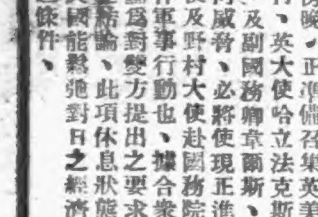 傍晚、正準備召集英美
行、英大使哈立法克斯
、及副國務卿韋爾斯、
何威脅、必將使現正進
及野村大使赴國務院
作軍事行動也、據合衆
論爲對雙方提出之要求
結論、此項休息狀態
國能鬆弛對日之經濟
條件、